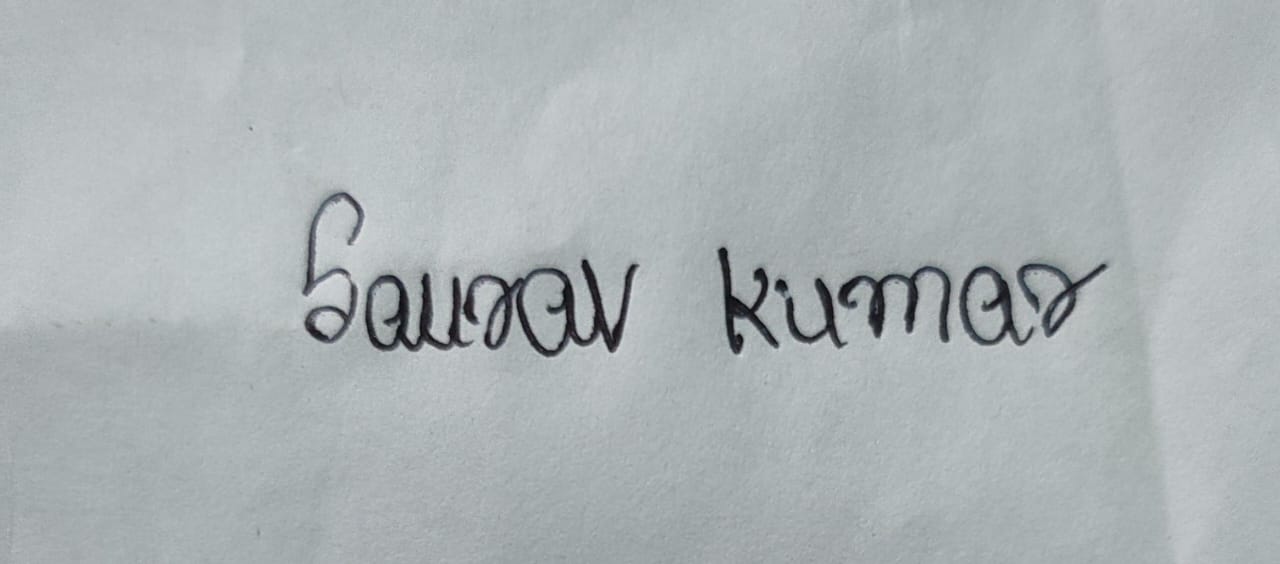 Saurav kumar